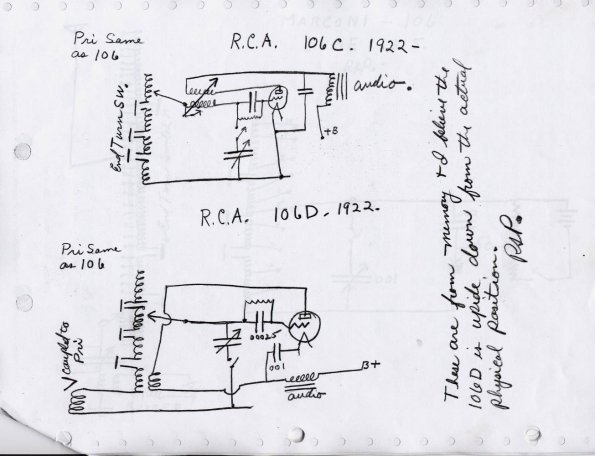 Pri Same
as 106
R.C.A. 106C. 1922-
End Turn Sw.
audio.
+B
R.C.A. 106D. 1922-
Pri Same
as 106
Coupled to
Pri
.00025
.001
audio
B+
These are from memory & I believe the
106D is upside down from the actual
physical position.